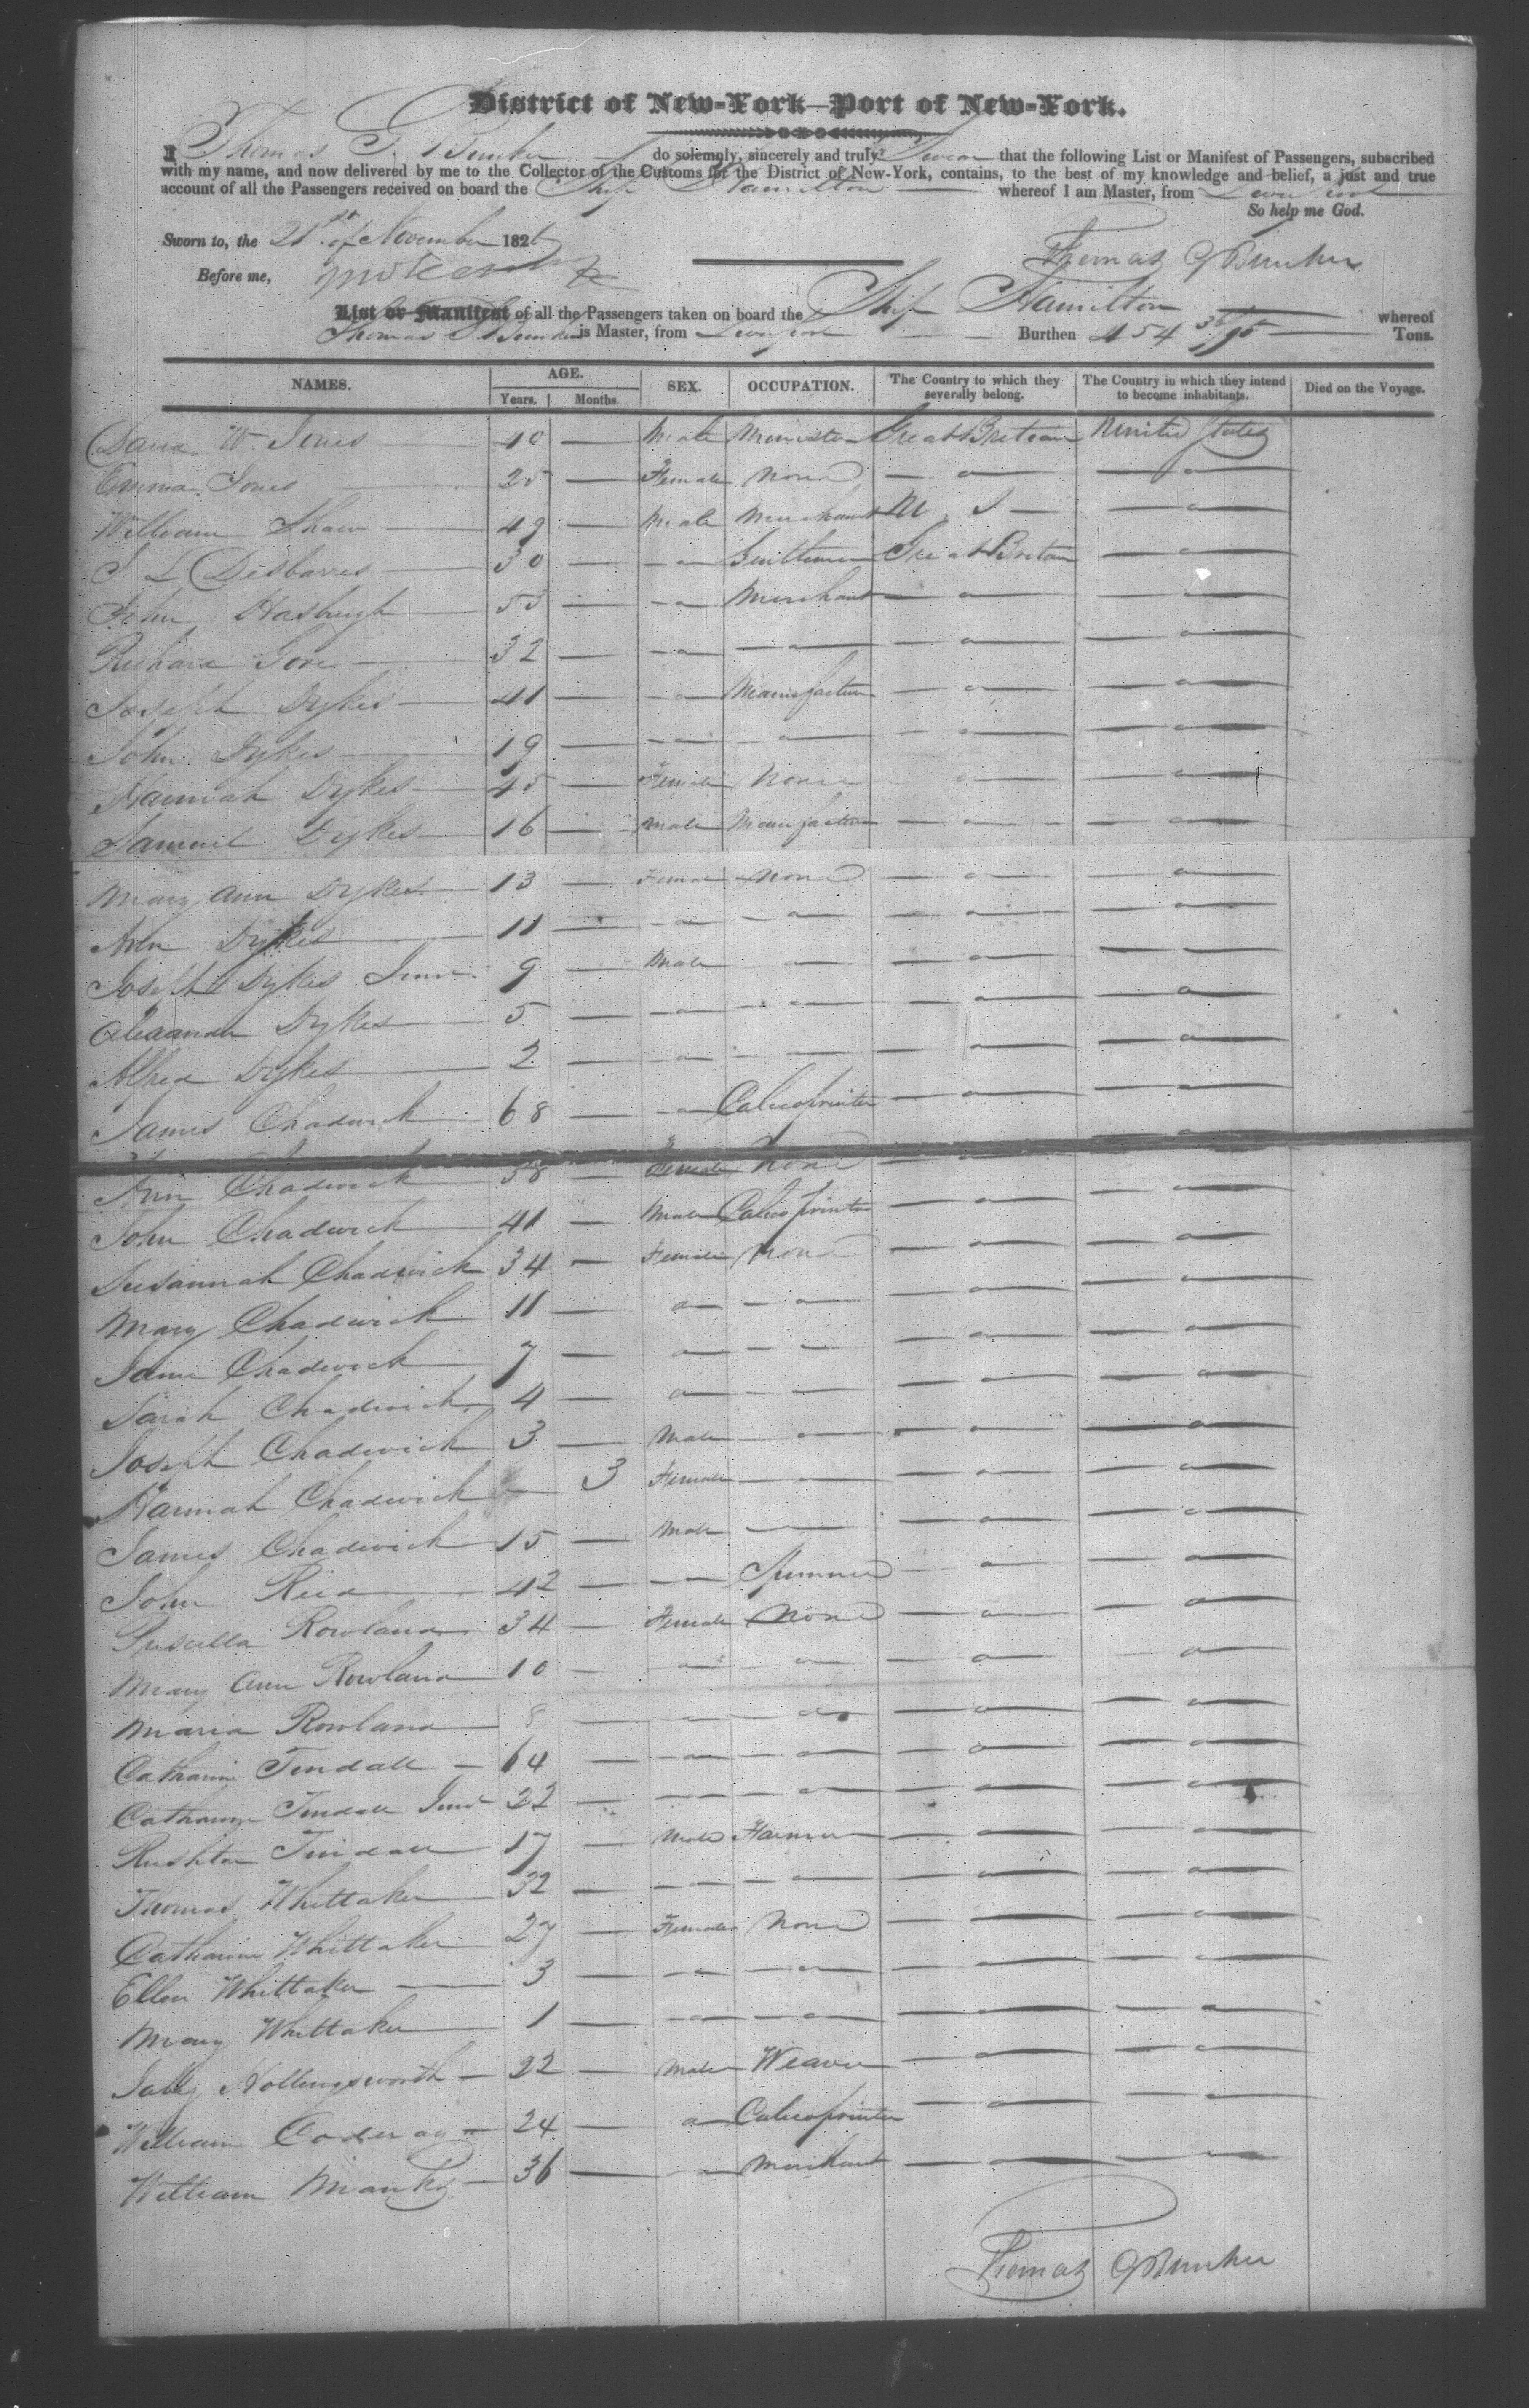 District of New-York—Port of New-York.
I Thomas G. Bunker do solemnly, sincerely and truly Swear that the following List or Manifest of Passengers, subscribed
with my name, and now delivered by me to the Collector of the Customs for the District of New-York, contains, to the best of my knowledge and belief, a just and true
account of all the Passengers received on board the Ship Hamilton whereof I am Master, from Liverpool
So help me God.
Sworn to, the 21st of November 1826
Thomas G Bunker
Before me,
List or Manifest of all the Passengers taken on board the Ship Hamilton whereof
Thomas G Bunker is Master, from Liverpool Burthen 454 36/95 Tons.
NAMES. AGE. Years. Months SEX. OCCUPATION. The Country to which they severally belong. The Country in which they intend to become inhabitants. Died on the Voyage.
David W. Jones 40 — Male Minister Great Britain United States
Emma Jones 25 — Female None — " — — " —
William Shaw 49 — Male Merchant U. S — — " —
J L Desbarres 30 — — " Gentleman Great Britain — " —
John 53 — — " Merchant — " — — " —
Richard 32 — — " — " — — " — — " —
Joseph Dykes 41 — — " Manufacturer — " — — " —
John Dykes 19 — — " — " — — " — — " —
Hannah Dykes 45 — Female None — " — — " —
Samuel Dykes 16 — Male Manufacturer — " — — " —
Mary Ann Dykes 13 — Female None — " — — " —
Ann Dykes 11 — — " — " — " — — " —
Joseph Dykes Junr. 9 — Male — " — " — — " —
Alexander Dykes 5 — — " — " — " — — " —
Alfred Dykes 2 — — " — " — " — — " —
James Chadwick 68 — — " Calicoprinter — " — — " —
Ann Chadwick 58 — Female None — " — — " —
John Chadwick 41 — Male Calicoprinter — " — — " —
Susannah Chadwick 34 — Female None — " — — " —
Mary Chadwick 11 — " — " — " — — " —
Jane Chadwick 7 — " — " — " — — " —
Sarah Chadwick 4 — " — " — " — — " —
Joseph Chadwick 3 — Male — " — " — — " —
Hannah Chadwick — 3 Female — " — " — — " —
James Chadwick 15 — Male — " — " — — " —
John Reid 42 — — " Spinner — " — — " —
Priscilla Rowland 34 — Female None — " — — " —
Mary Ann Rowland 10 — — " — " — " — — " —
Maria Rowland 8 — — " — " — " — — " —
Catharine Tindall 64 — — " — " — " — — " —
Catharine Tindall Junr 22 — — " — " — " — — " —
Rushton Tindall 17 — Male Farmer — " — — " —
Thomas Whittaker 32 — — " — " — " — — " —
Catharine Whittaker 27 — Female None — " — — " —
Ellen Whittaker 3 — — " — " — " — — " —
Mary Whittaker 1 — — " — " — " — — " —
Hollingsworth 22 — Male Weaver — " — — " —
William 24 — " Calicoprinter — " — — " —
William Manks 36 — — " Merchant — " — — " —
Thomas G Bunker